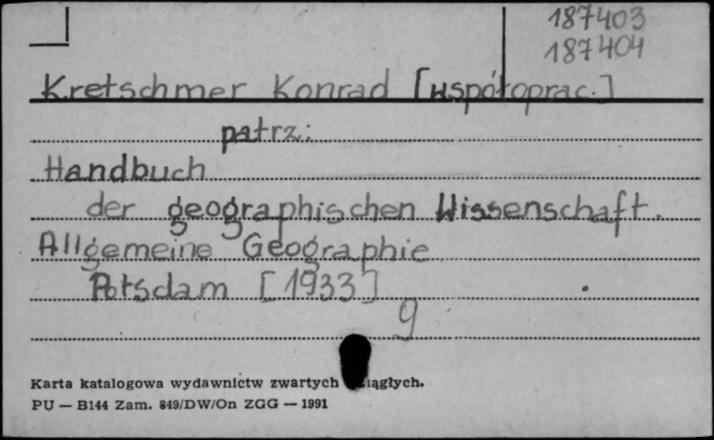 187403
187404
Kretschmer Konrad [współoprac.]
patrz:
Handbuch
der geographischen Wissenschaft.
Allgemeine Geographie
Potsdam [1933]
g
Karta katalogowa wydawnictw zwartych ciągłych.
PU — B144 Zam. 849/DW/On ZGG — 1991